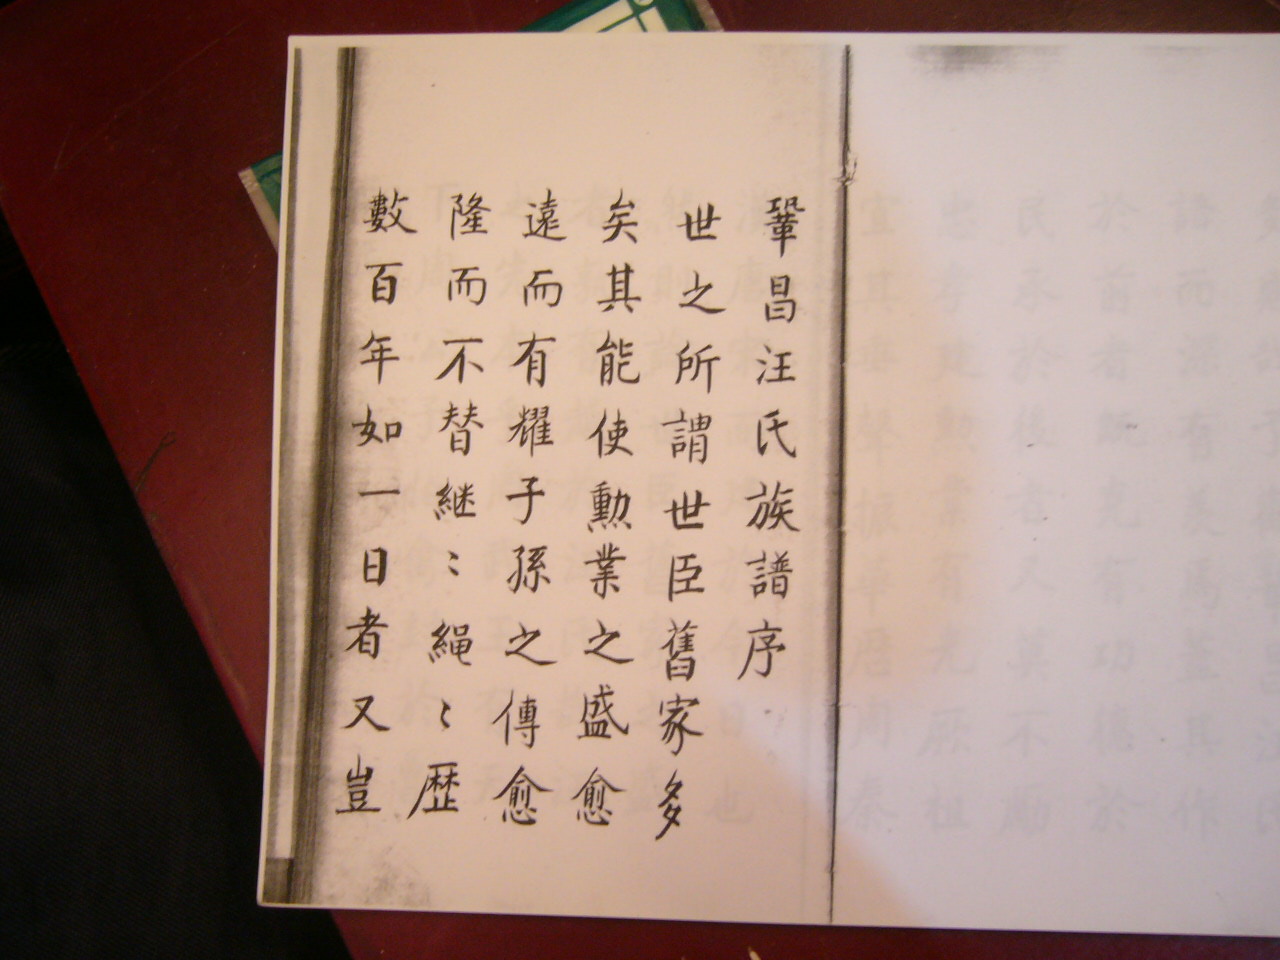 鞏昌汪氏族譜序
世之所謂世臣舊家多
矣其能使勲業之盛愈
遠而有耀子孫之傳愈
隆而不替継〻繩〻歴
數百年如一日者又豈